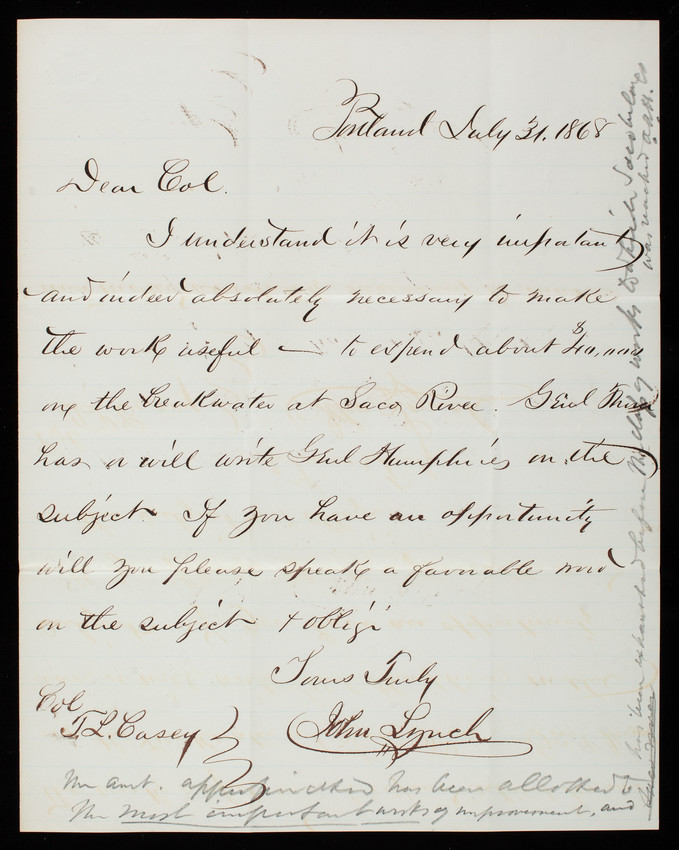 Portland July 31. 1868
Dear Col.
I understand it is very important
and indeed absolutely necessary to make
the work useful — to expend about $40,000
on the breakwater at Saco River. Genl Thom
has or will write Genl Humphries on the
subject. If you have an opportunity
will you please speak a favorable word
on the subject & oblige
Yours Truly
John Lynch
Col
T. L. Casey
The amt. appropriated has been allotted to
the most important works of improvement, and
has been exhausted before the class of works to which Saco belongs
was reached